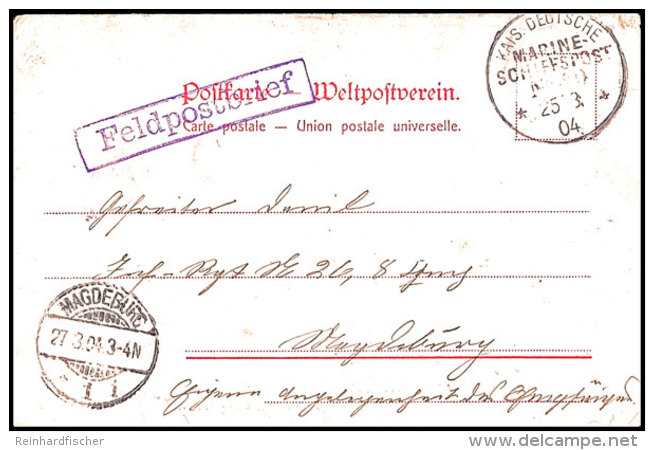 KAIS. DEUTSCHE
MARINE-
SCHIFFSPOST
25 3
* *
04
Feldpostbrief
Postkarte — Weltpostverein.
Carte postale — Union postale universelle.
Gefreiter
Inf.-Rgt № 26, 8
MAGDEBURG
27.3.04.3-4N
* 1 i
Magdeburg
Eigene Angelegenheit des Empfängers
Reinhardfischer
delcampe.net